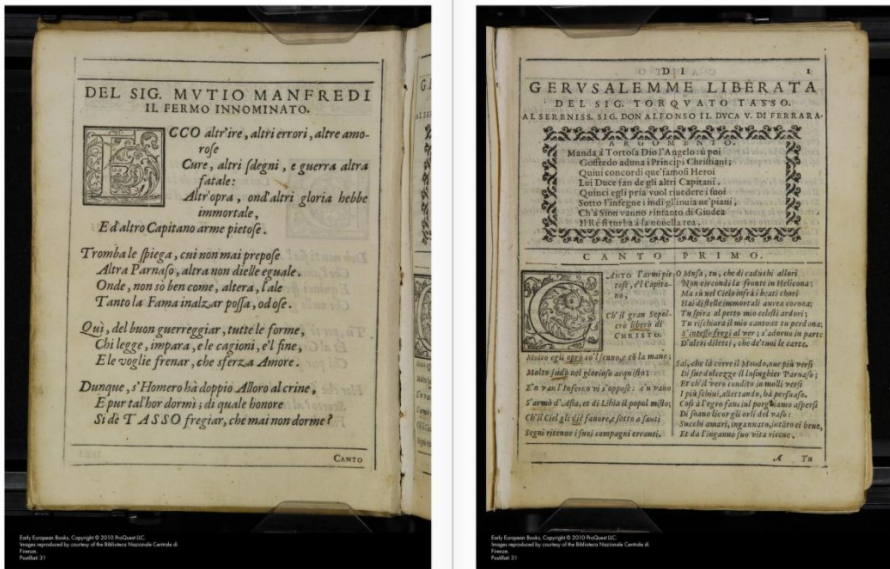 DEL SIG. MVTIO MANFREDI
IL FERMO INNOMINATO.
ECCO altr'ire, altri errori, altre amo-
rose
Cure, altri sdegni, e guerra altra
fatale:
Altr'opra, ond'altri gloria hebbe
immortale,
E d'altro Capitano arme pietose.
Tromba le spiega, cui non mai prepose
Altra Parnaso, altra non dielle eguale.
Onde, non sò ben come, altera, l'ale
Tanto la Fama inalzar possa, od ose.
Quì, del buon guerreggiar, tutte le forme,
Chi legge, impara, e le cagioni, e'l fine,
E le voglie frenar, che sferza Amore.
Dunque, s'Homero hà doppio Alloro al crine,
E pur tal'hor dormì; di quale honore
Si dè TASSO fregiar, che mai non dorme?
CANTO
Early European Books, Copyright © 2010 ProQuest LLC.
Images reproduced by courtesy of the Biblioteca Nazionale Centrale di
Firenze.
Postillati 31
DI 1
GERVSALEMME LIBERATA
DEL SIG. TORQVATO TASSO.
AL SERENISS. SIG. DON ALFONSO II. DVCA V. DI FERRARA.
ARGOMENTO.
Manda à Tortosa Dio l'Angelo: ù poi
Goffredo aduna i Principi Christiani;
Quiui concordi que' famosi Heroi
Lui Duce fan de gli altri Capitani.
Quinci egli pria vuol riuedere i suoi
Sotto l'insegne: indi gl'inuia ne' piani,
Ch'à Sion vanno: intanto di Giudea
Il Rè si turba à la nouella rea.
CANTO PRIMO.
CANTO l'armi pie
tose, e'l Capita-
no,
Ch'il gran Sepol-
cro liberò di
CHRISTO.
Molto egli oprò co'l senno, e cõ la mano;
Molto soffrì nel glorioso acquisto:
E'n van l'Inferno vi s'oppose: a'n vano
S'armò d'Asia, et di Libia il popol misto;
Ch'il Ciel gli diè fauore, e sotto a santi
Segni ritenne i suoi compagni erranti.
O Musa, tu, che di caduchi allori
Non circondi la fronte in Helicona;
Ma sù nel Cielo infrà i beati chori
Hai di stelle immortali aurea corona;
Tu spira al petto mio celesti ardori;
Tu rischiara il mio canto: et tu perdona;
S'intesso fregi al ver; s'adorno in parte
D'altri diletti, che de' tuoi le carte.
Sai, che là corre il Mondo, oue più versi
Di sue dolcezze il lusinghier Parnaso;
Et ch'il vero condito in molli versi
I più schiui, allettando, hà persuaso.
Così à l'egro fanciul porgiamo aspersi
Di soaue licor gli orli del vaso:
Succhi amari, ingannato, intãto ei beue,
Et da l'inganno suo vita riceue.
A Tu
Early European Books, Copyright © 2010 ProQuest LLC.
Images reproduced by courtesy of the Biblioteca Nazionale Centrale di
Firenze.
Postillati 31